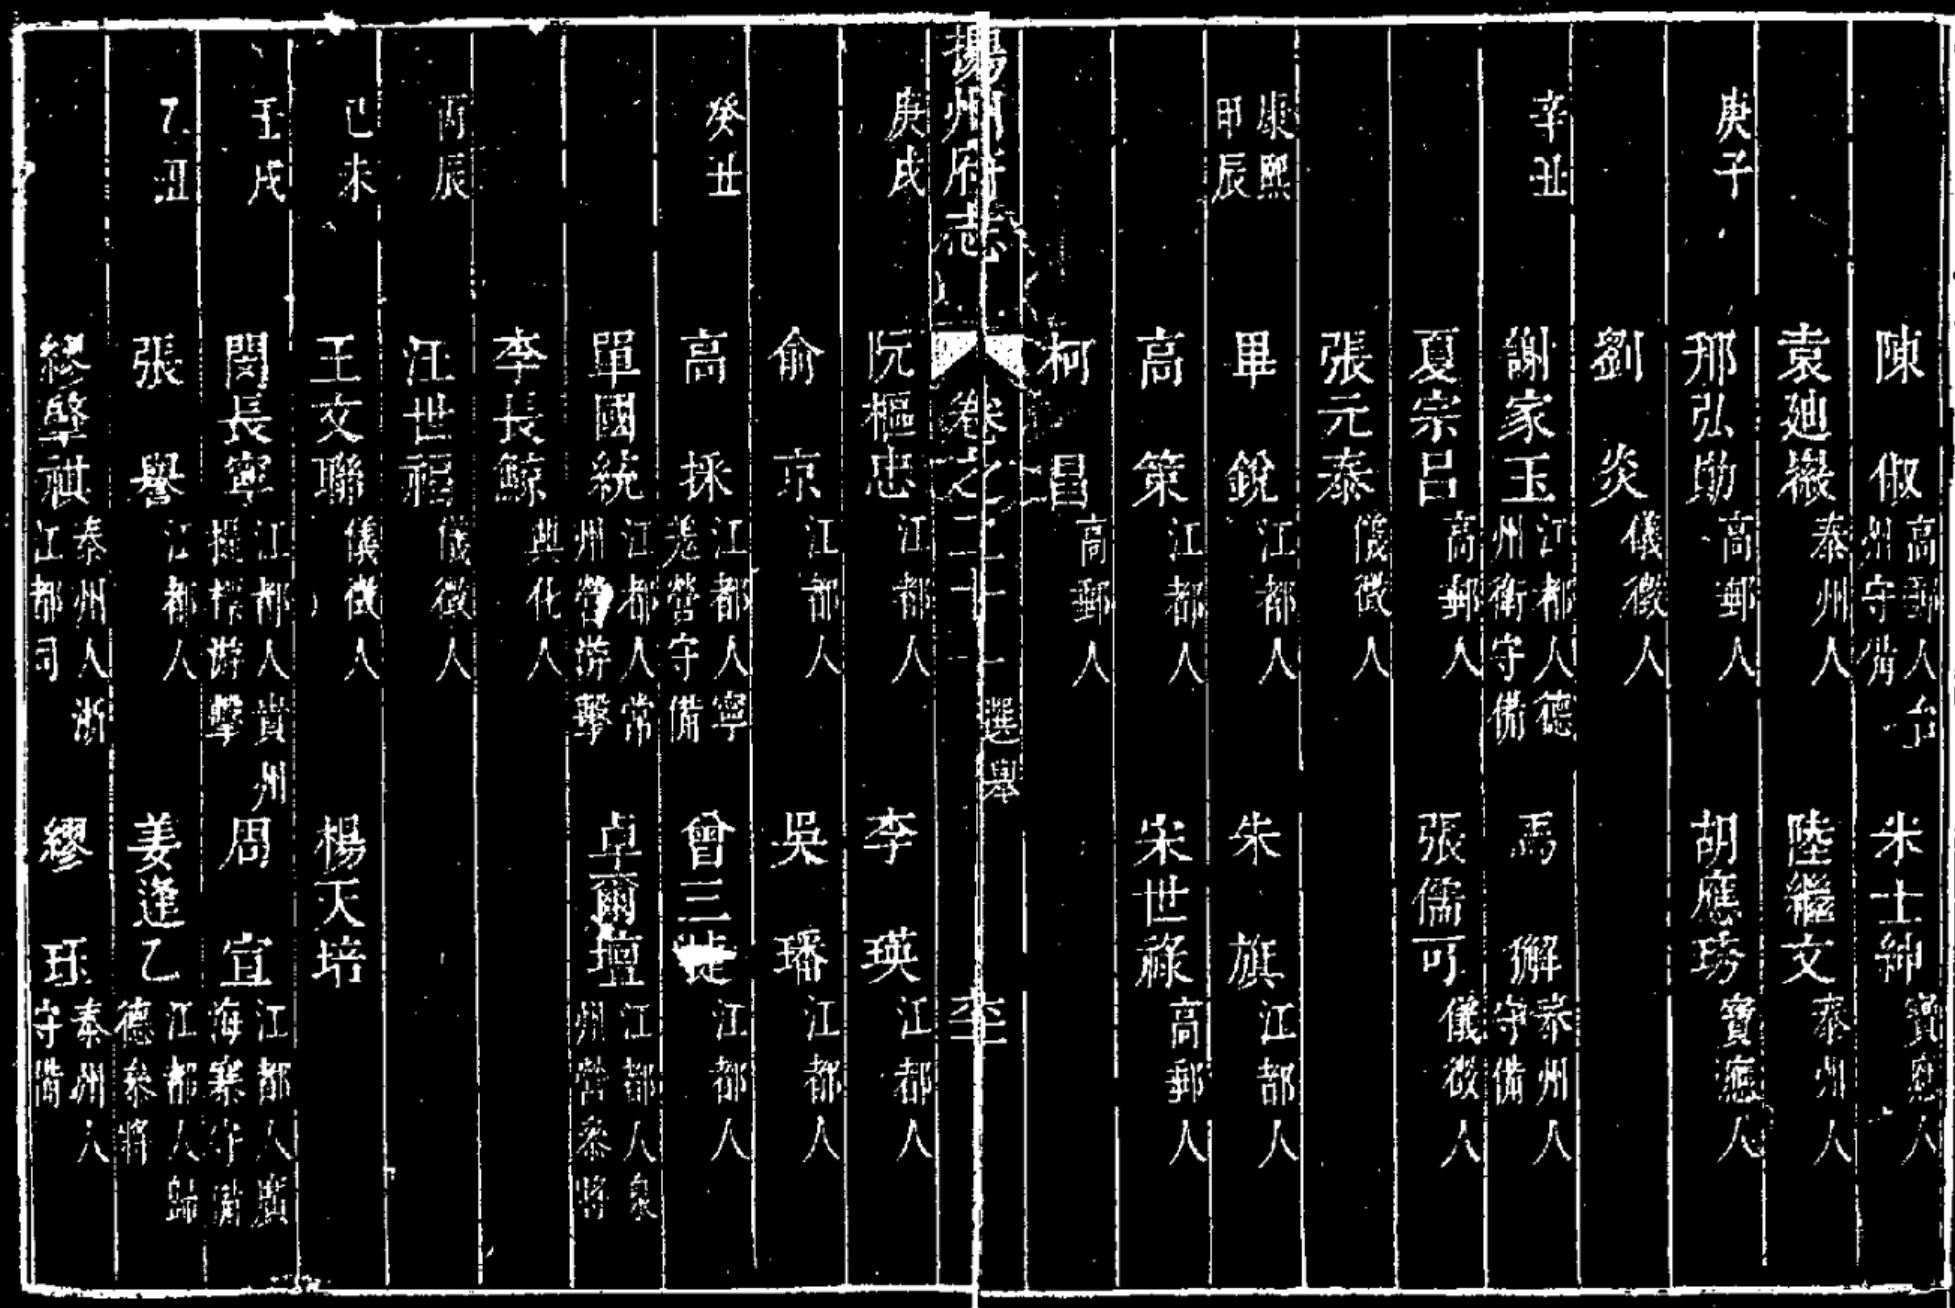 陳俶 高郵人台州守備 朱士紳 寶應人
袁廸嶶 泰州人 陸繼文 泰州人
庚子 邢弘勛 高郵人 胡應琇 寶應人
劉炎 儀徵人
辛丑 謝家玉 江都人德州衛守備 禹獬 泰州人守備
夏宗呂 高郵人 張儒可 儀徵人
張元泰 儀徵人
康熙甲辰 畢銳 江都人 朱旗 江都人
高策 江都人 宋世祿 高郵人
柯昌 高郵人
揚州府志 卷之二十一 選舉
庚戌 阮樞忠 江都人 李瑛 江都人
俞京 江都人 吳璠 江都人
癸丑 高採 江都人寧羌營守備 曾三 江都人
單國統 江都人常州營游擊 卓爾壇 江都人泉州營叅將
李長鯨 興化人
丙辰 汪世福 儀徵人
己未 王文聯 儀徵人 楊天培
壬戌 閔長寧 江都人貴州提標游擊 周宜 江都人廣海寨守備
乙丑 張譽 江都人 姜逢乙 江都人歸德叅將
繆擎祺 泰州人浙江都司 繆珏 泰州人守備